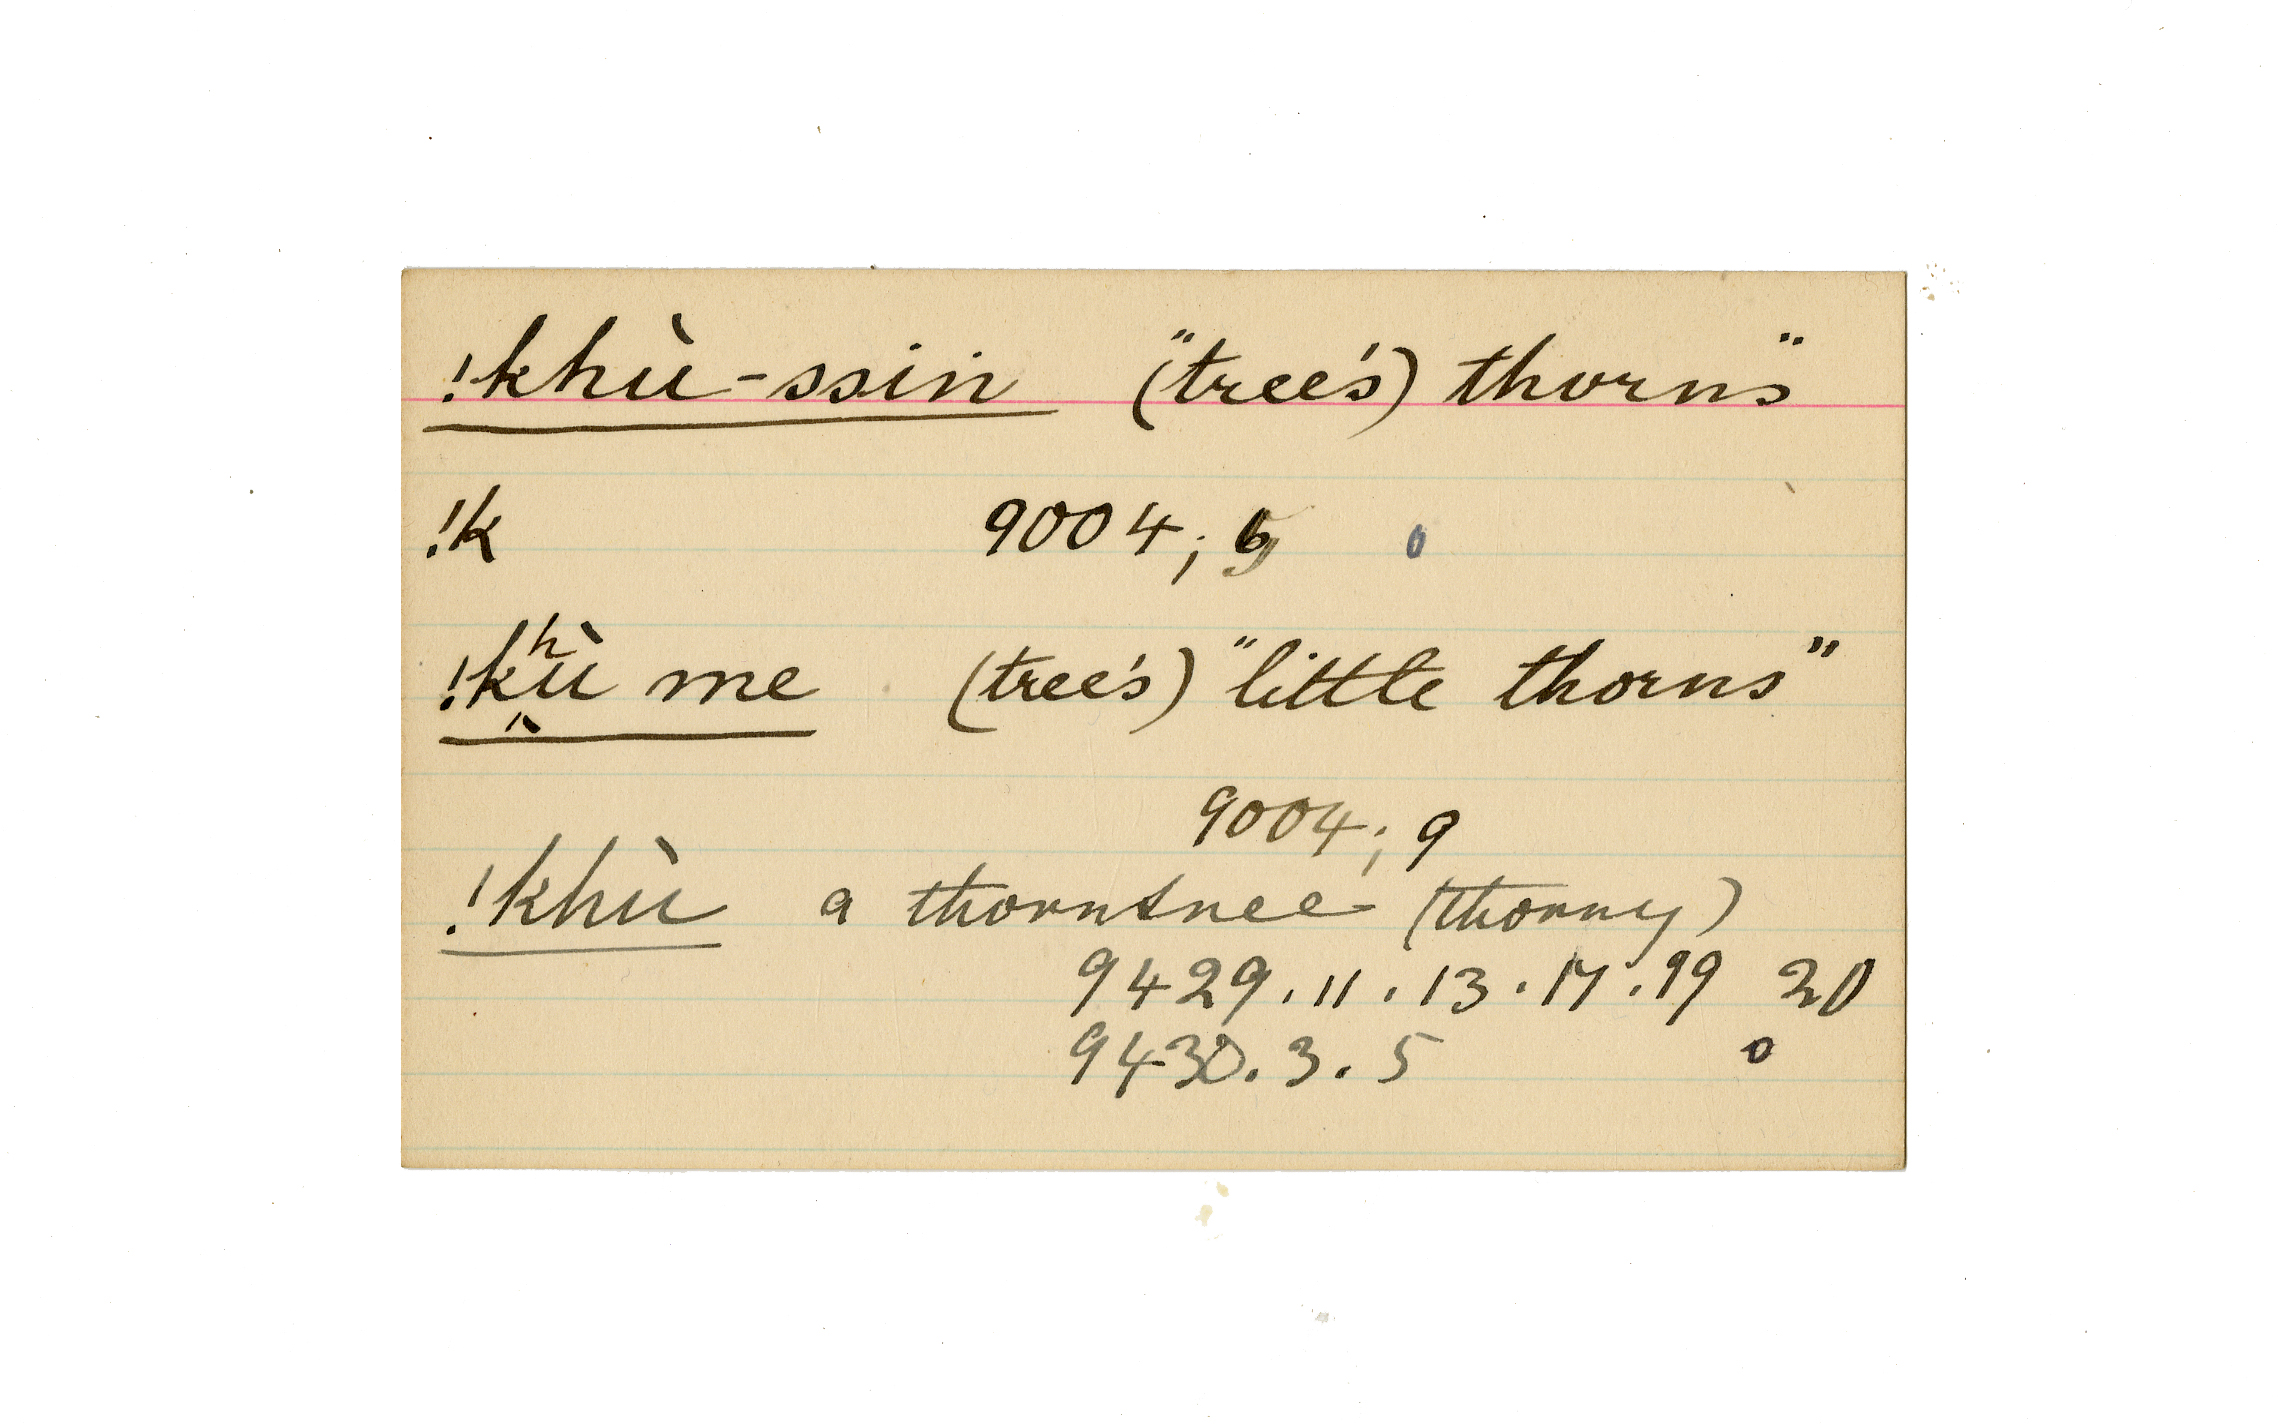 !khù-ssin ("tree's) thorns"
!k 9004; 0
!kʰù me (tree's) "little thorns"
9004; 9
!khù a thorntree (thorny)
9429.11.13.17.19 20
9430.3.5 0